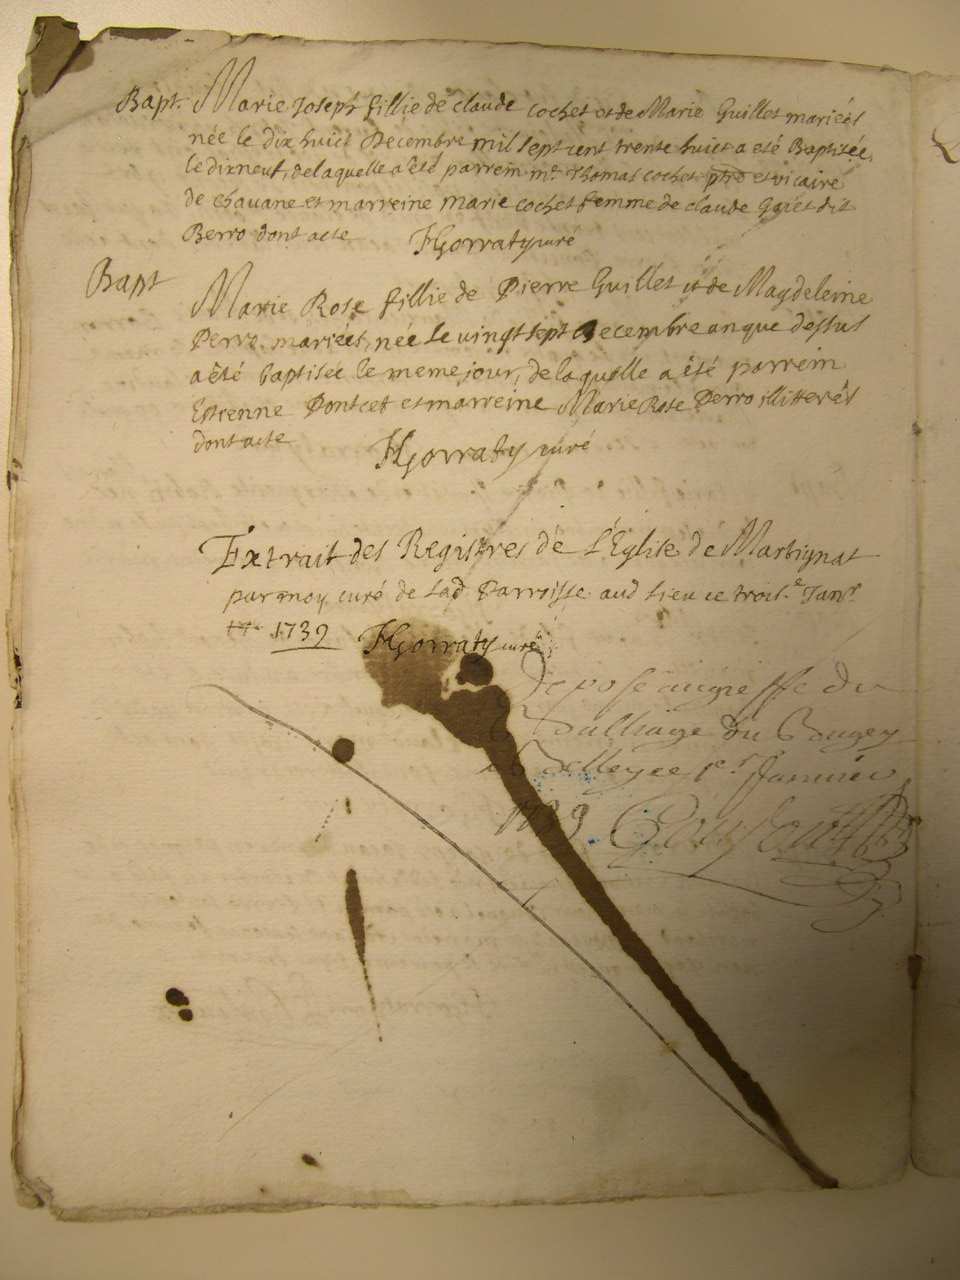 Bapt. Marie Joseph fillie de claude cochet et de Marie Guillet mariéés
née le dix huict Decembre mil sept cent trente huict a eté Baptisée,
le dixneuf, de laquelle a été parrein mr. Thomas cochet ptre et vicaire
de chavane et marreine marie cochet femme de claude Goiet dit
Berro dont acte HGorraty curé
Bapt Marie Rose fillie de Pierre Guillet et de Magdeleine
Perro, mariéés, née le vingt sept decembre an que dessus
a été baptisée le meme jour, de laquelle a été parrein
Estienne Pontcet et marreine Marie Rose Perro illitterés
dont acte HGorraty curé
Extrait des Registres de L'Eglise de Martignat
par moy curé de lad Parroisse aud lieu ce trois.e Janr.
17 1739 HGorraty curé
Deposé au greffe du
Balliage du Bugey
A Belley ce Janvier
1739